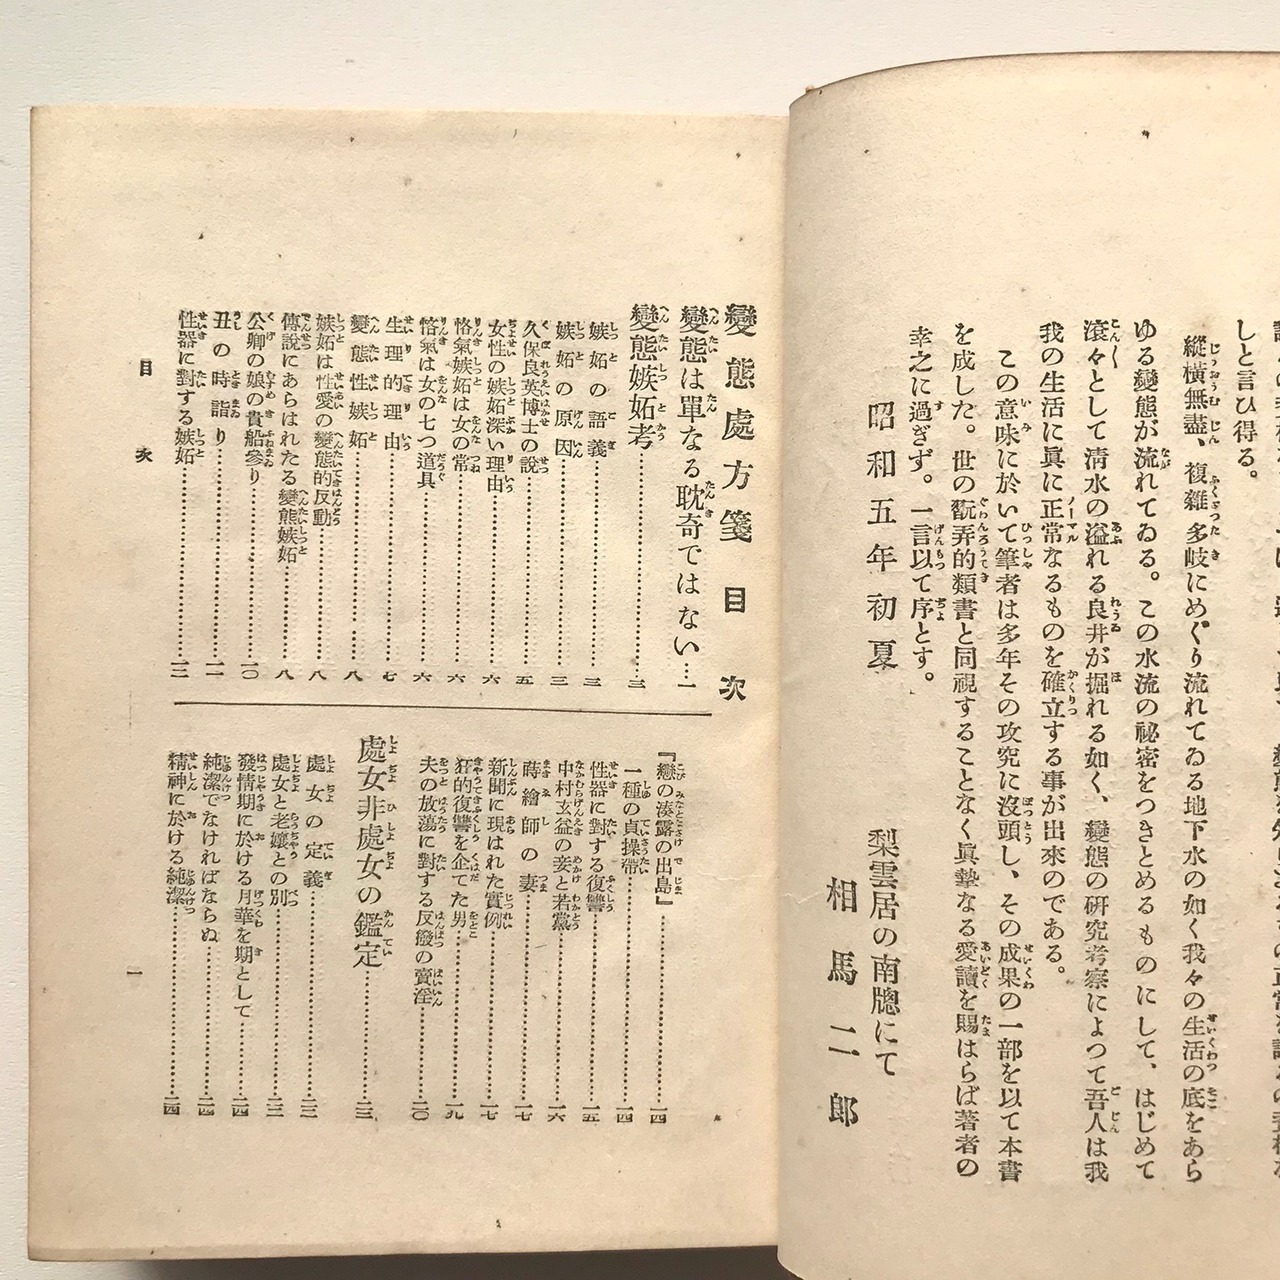 しと言ひ得る。
縱橫無盡、複雜多岐にめぐり流れてゐる地下水の如く我々の生活の底をあら
ゆる變態が流れてゐる。この水流の祕密をつきとめるものにして、はじめて
滾々として淸水の溢れる良井が掘れる如く、變態の硏究考察によつて吾人は我
我の生活に眞に正常なるものを確立する事が出來のである。
この意味に於いて筆者は多年その攻究に沒頭し、その成果の一部を以て本書
を成した。世の翫弄的類書と同視することなく眞摯なる愛讀を賜はらば著者の
幸之に過ぎず。一言以て序とす。
昭和五年初夏
梨雲居の南牕にて
相馬二郎
變態處方箋 目次
變態は單なる耽奇ではない…一
變態嫉妬考…三
嫉妬の語義…三
嫉妬の原因…三
久保良英博士の說…五
女性の嫉妬深い理由…六
悋氣嫉妬は女の常…六
悋氣は女の七つ道具…六
生理的理由…七
變態性嫉妬…八
嫉妬は性愛の變態的反動…八
傳說にあらはれたる變態嫉妬…八
公卿の娘の貴船參り…一〇
丑の時詣り…一一
性器に對する嫉妬…一二
『戀の湊露の出島』…一四
一種の貞操帶…一四
性器に對する復讐…一五
中村玄益の妾と若黨…一六
蒔繪師の妻…一七
新聞に現はれた實例…一七
狂的復讐を企てた男…一九
夫の放蕩に對する反撥の賣淫…二〇
處女非處女の鑑定…二三
處女の定義…二三
處女と老孃との別…二三
發情期に於ける月華を期として…二四
純潔でなければならぬ…二四
精神に於ける純潔…二四
目次
一